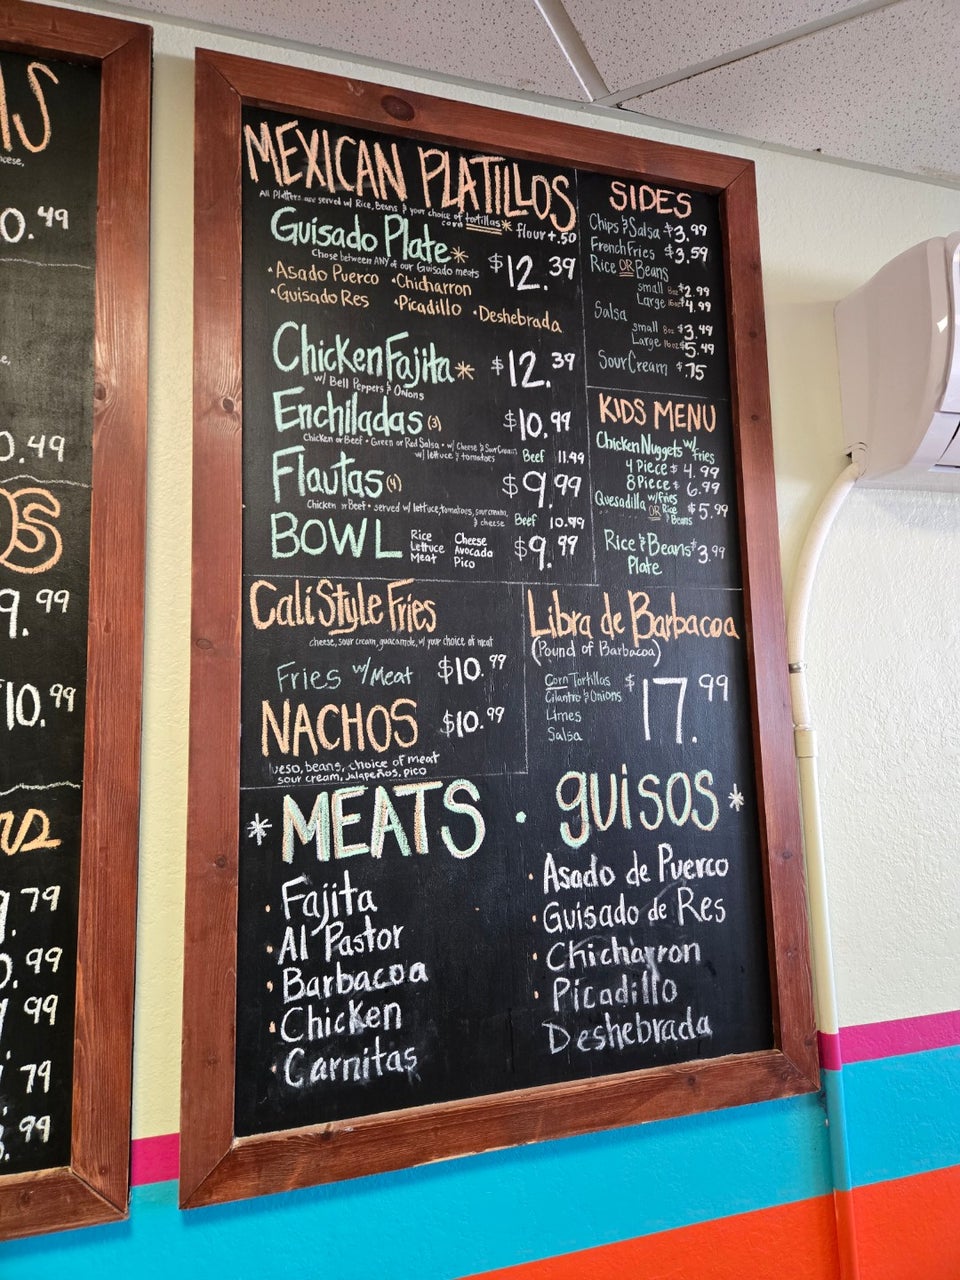 IS
0.49
0.49
OS
9.99
10.99
.79
.99
.99
.79
.99
MEXICAN PLATILLOS
All Platters are served w/ Rice, Beans & your choice of tortillas*
corn flour +.50
Guisado Plate*
$12.39
Chose between ANY of our Guisado meats
• Asado Puerco • Chicharron
• Guisado Res • Picadillo • Deshebrada
Chicken Fajita*
$12.39
w/ Bell Peppers & Onions
Enchiladas (3)
$10.99
Chicken or Beef • Green or Red Salsa • w/ Cheese & Sour Cream
w/ lettuce & tomatoes
Beef 11.99
Flautas (4)
$9.99
Chicken or Beef • served w/ lettuce, tomatoes, sour cream,
& cheese
Beef 10.99
BOWL
Rice Cheese
Lettuce Avocado
Meat Pico
$9.99
SIDES
Chips & Salsa $3.99
French Fries $3.59
Rice OR Beans
small 8oz $2.99
Large 16oz $4.99
Salsa
small 8oz $3.49
Large 16oz $5.49
Sour Cream $.75
KIDS MENU
Chicken Nuggets w/ fries
4 Piece $4.99
8 Piece $6.99
Quesadilla w/fries OR Rice & Beans $5.99
Rice & Beans $3.99
Plate
Cali Style Fries
cheese, sour cream, guacamole, w/ your choice of meat
Fries w/ Meat $10.99
NACHOS $10.99
ueso, beans, choice of meat
sour cream, jalapeños, pico
Libra de Barbacoa
(Pound of Barbacoa)
Corn Tortillas
Cilantro & Onions
Limes
Salsa
$17.99
* MEATS • GUISOS *
• Fajita
• Al Pastor
• Barbacoa
• Chicken
• Carnitas
• Asado de Puerco
• Guisado de Res
• Chicharron
• Picadillo
Deshebrada